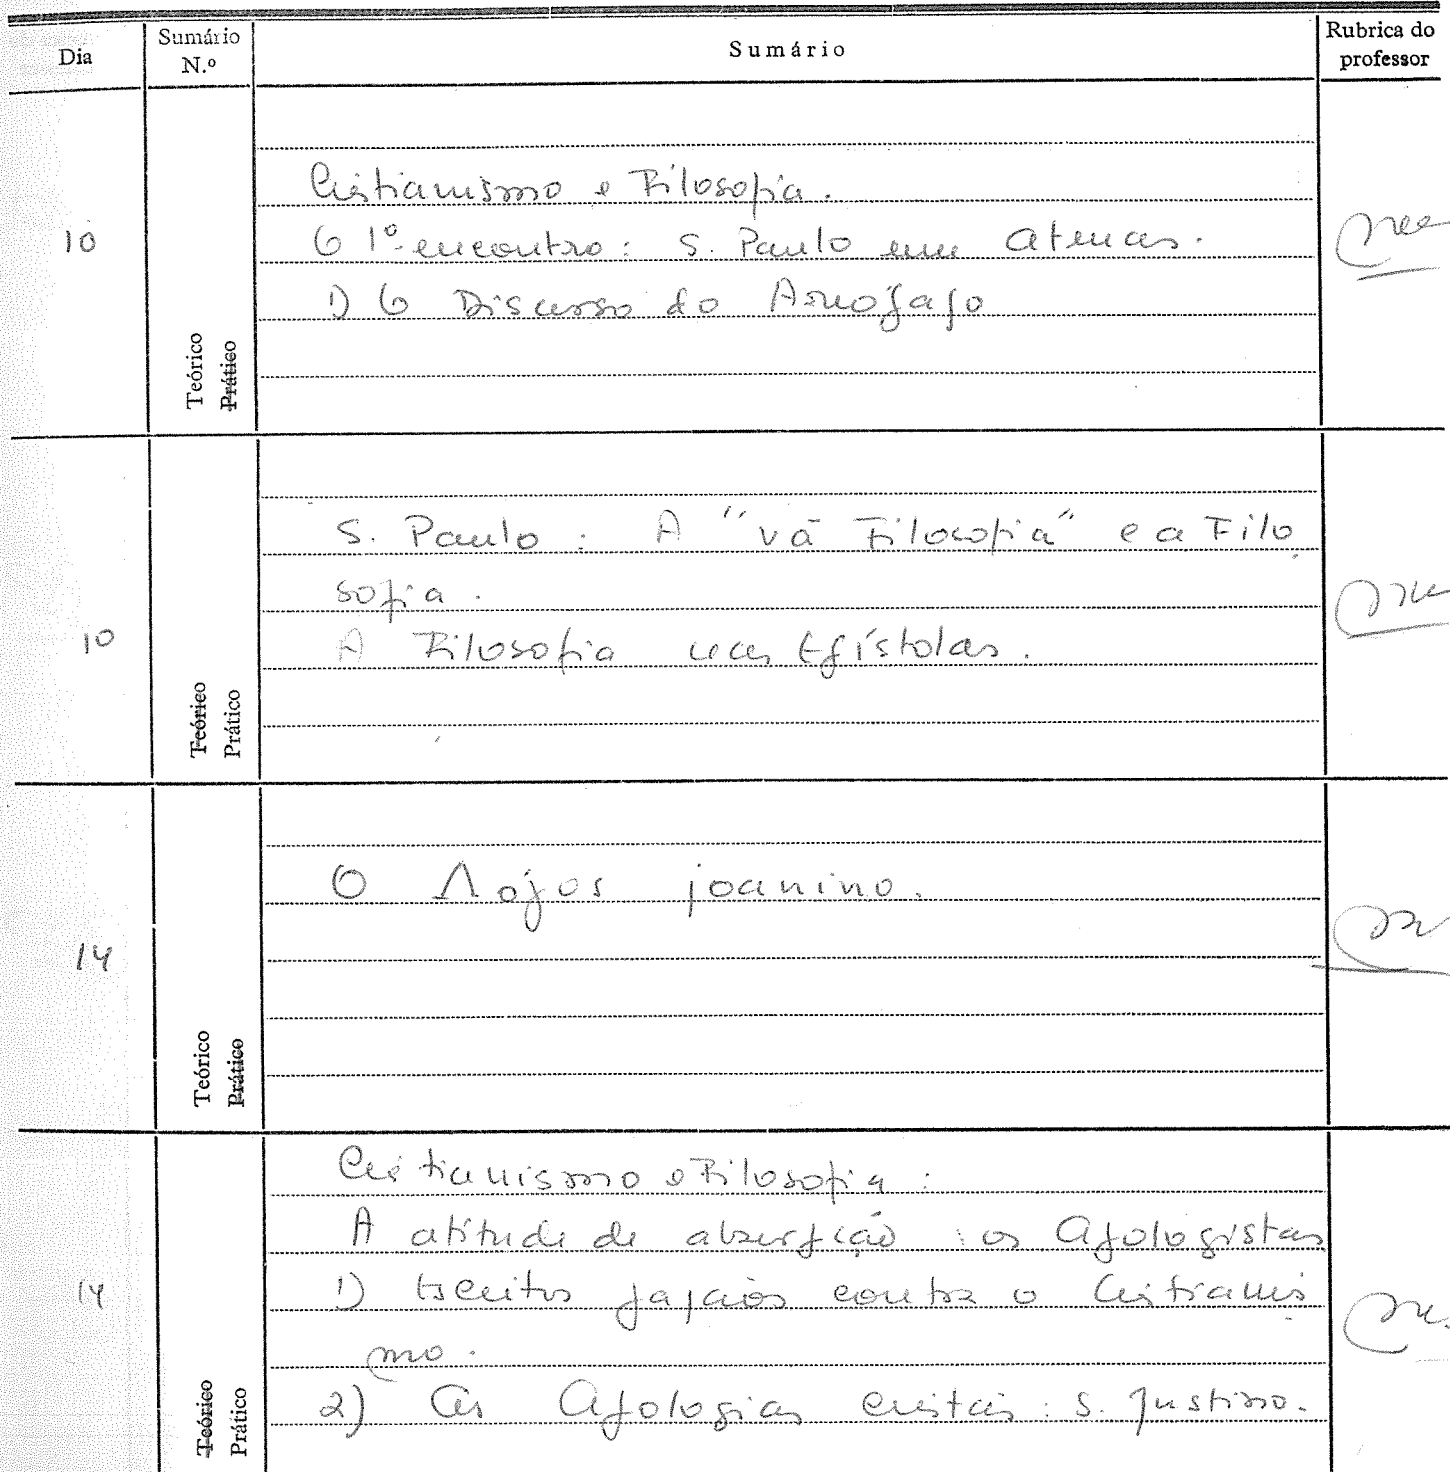 Dia
Sumário N.º
Sumário
Rubrica do professor
10
Teórico
Prático
Cristianismo e Filosofia.
O 1º encontro: S. Paulo em Atenas.
1) O Discurso do Areópago
10
Teórico
Prático
S. Paulo: A "vã Filosofia" e a Filo
sofia.
A Filosofia nas Epístolas.
14
Teórico
Prático
O Λogos joanino.
14
Teórico
Prático
Cristianismo e Filosofia:
A atitude de absorpção: os Apologistas
1) Escritos pagãos contra o Cristianis
mo.
2) As Apologias cristãs: S. Justino.